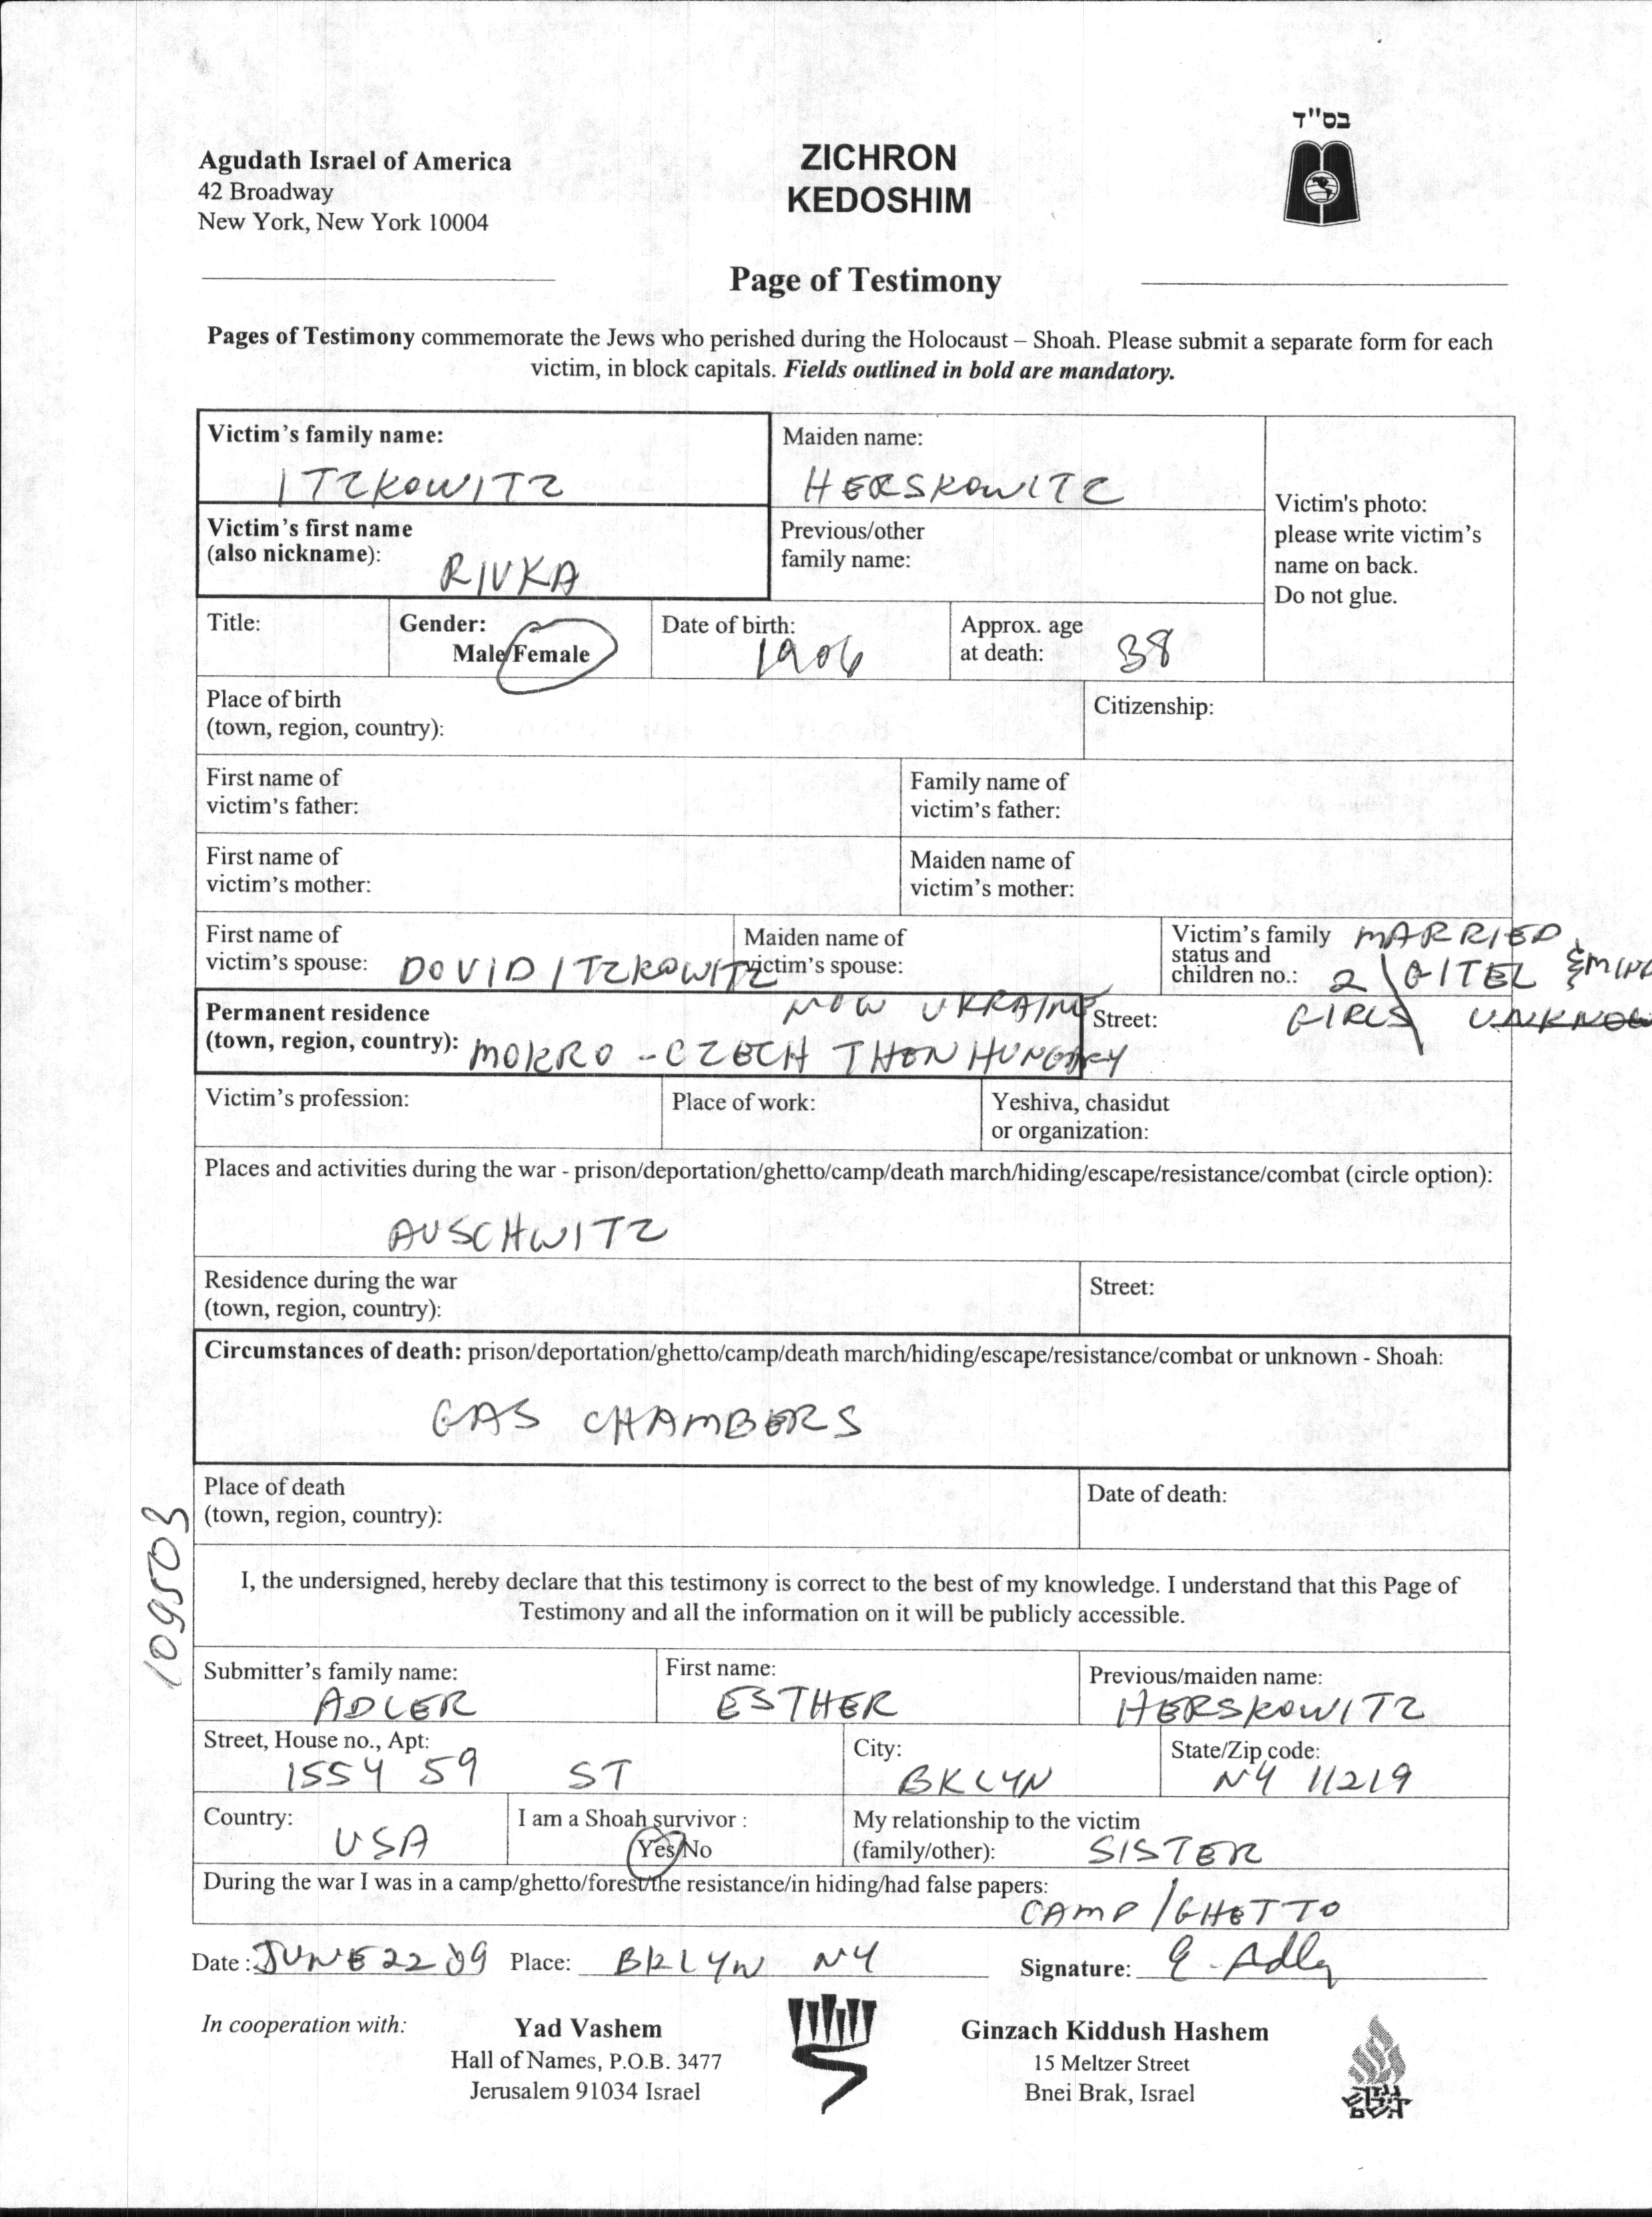 בס"ד
Agudath Israel of America
42 Broadway
New York, New York 10004
ZICHRON
KEDOSHIM
Page of Testimony
Pages of Testimony commemorate the Jews who perished during the Holocaust – Shoah. Please submit a separate form for each
victim, in block capitals. Fields outlined in bold are mandatory.
Victim's family name:
ITZKOWITZ
Maiden name:
HERSKOWITZ
Victim's photo:
please write victim's
name on back.
Do not glue.
Victim's first name
(also nickname):
RIVKA
Previous/other
family name:
Title:
Gender:
Male/Female
Date of birth:
1906
Approx. age
at death:
38
Place of birth
(town, region, country):
Citizenship:
First name of
victim's father:
Family name of
victim's father:
First name of
victim's mother:
Maiden name of
victim's mother:
First name of
victim's spouse: DOVID ITZKOWITZ
Maiden name of
victim's spouse:
Victim's family MARRIED
status and
children no.: 2 GITEL &
GIRLS
Permanent residence NOW UKRAINE
(town, region, country): MOKRO - CZECH THEN HUNGARY
Street:
Victim's profession:
Place of work:
Yeshiva, chasidut
or organization:
Places and activities during the war - prison/deportation/ghetto/camp/death march/hiding/escape/resistance/combat (circle option):
AUSCHWITZ
Residence during the war
(town, region, country):
Street:
Circumstances of death: prison/deportation/ghetto/camp/death march/hiding/escape/resistance/combat or unknown - Shoah:
GAS CHAMBERS
Place of death
(town, region, country):
Date of death:
109503
I, the undersigned, hereby declare that this testimony is correct to the best of my knowledge. I understand that this Page of
Testimony and all the information on it will be publicly accessible.
Submitter's family name:
ADLER
First name:
ESTHER
Previous/maiden name:
HERSKOWITZ
Street, House no., Apt:
1554 59 ST
City:
BKLYN
State/Zip code:
NY 11219
Country:
USA
I am a Shoah survivor :
Yes/No
My relationship to the victim
(family/other): SISTER
During the war I was in a camp/ghetto/forest/the resistance/in hiding/had false papers:
CAMP/GHETTO
Date : JUNE 22 09 Place: BKLYN NY Signature: E. Adler
In cooperation with:
Yad Vashem
Hall of Names, P.O.B. 3477
Jerusalem 91034 Israel
Ginzach Kiddush Hashem
15 Meltzer Street
Bnei Brak, Israel